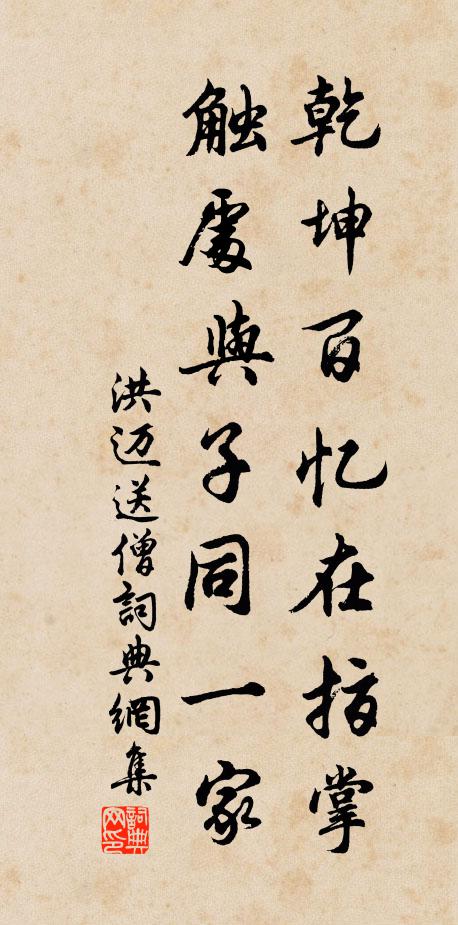 乾坤百忆在指掌
触處與子同一家
洪迈送僧詞典網集
詞典网印